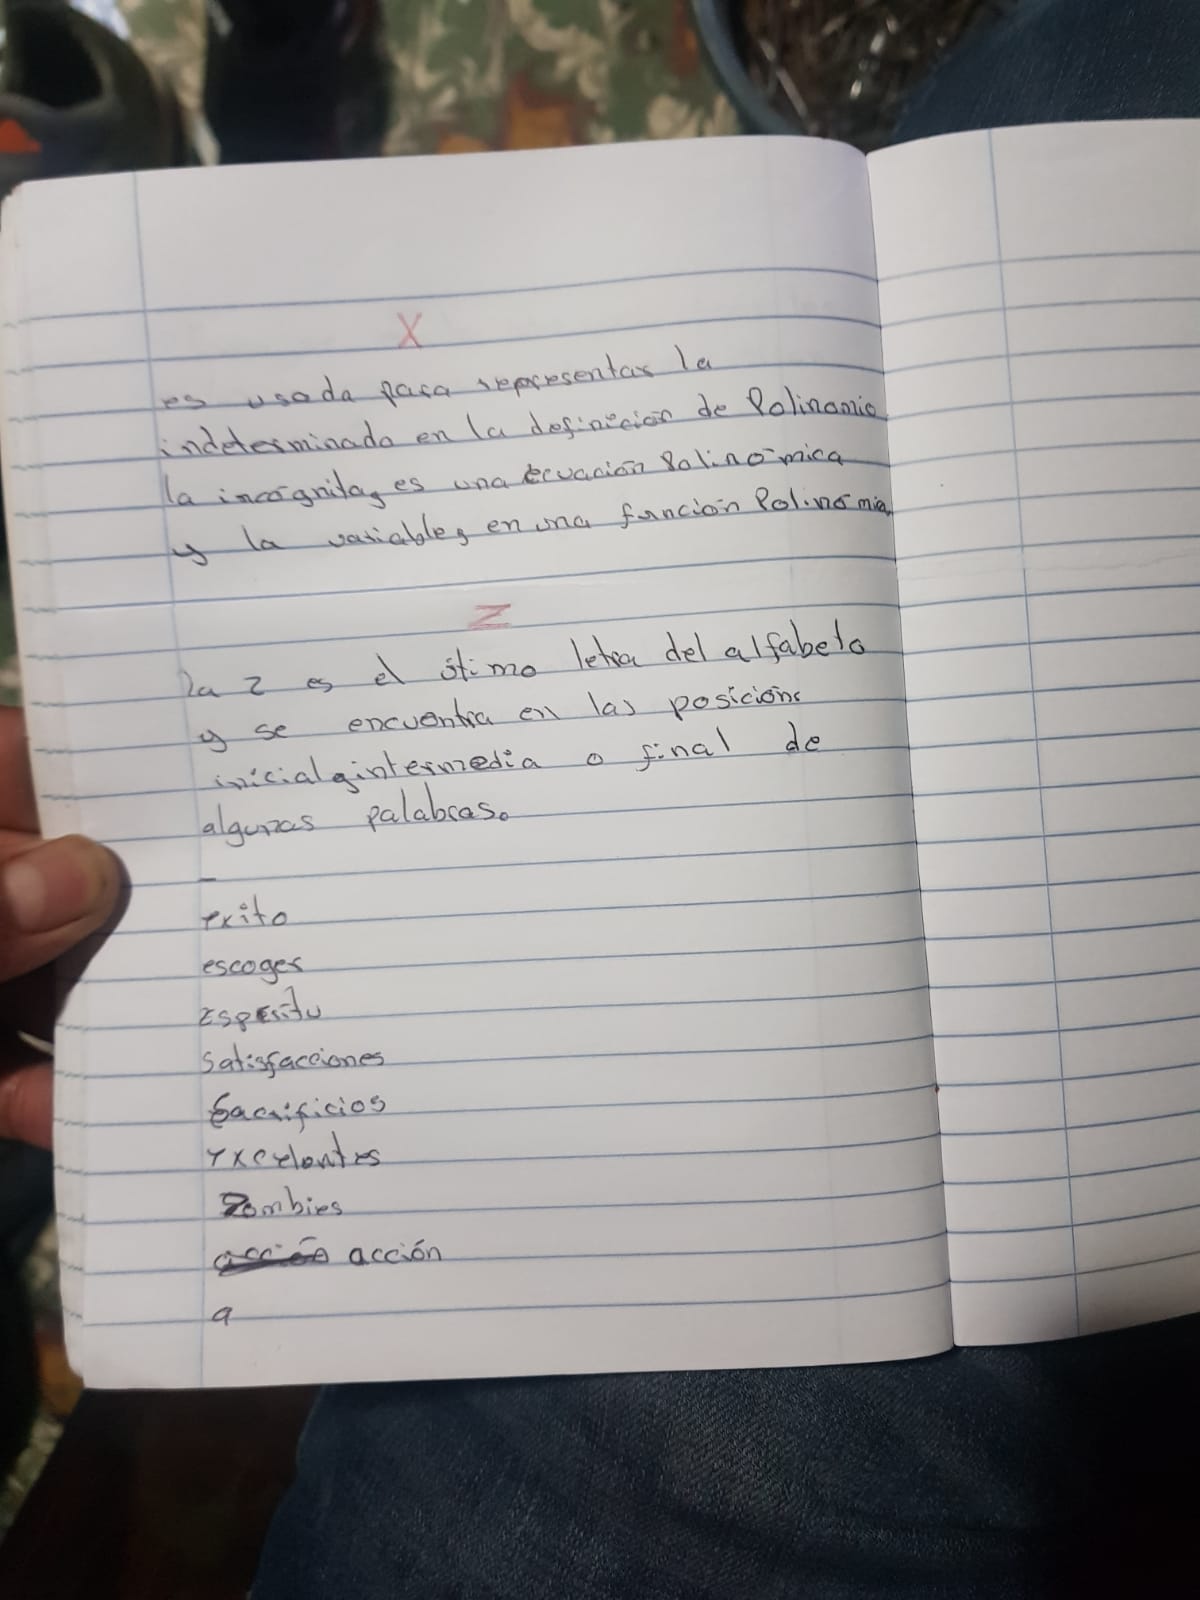 X
es usada para representar la
indeterminado en la definición de Polinomio
la incógnita, es una ecuación Polinómica
y la variable, en una función Polinómia,
Z
la z es el útimo letra del alfabeto
y se encuentra en las posicións
inicial, intermedia o final de
algunas palabras.
exito
escoges
Espesitu
Satisfacciones
Sacrificios
excelentes
Zombies
acción acción
a